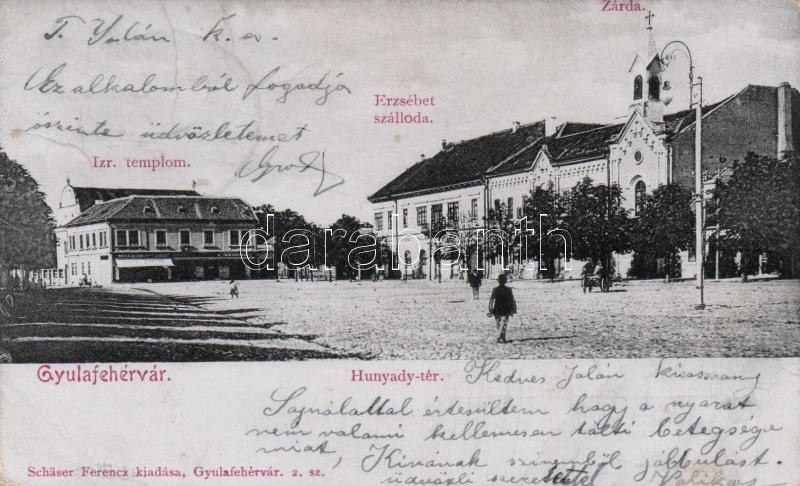 Zárda.
T. Jolán k. a.
Ez alkalomból fogadja
őszinte üdvözletemet
Erzsébet
szálloda.
Izr. templom.
darabanth.com
Gyulafehérvár.
Hunyady-tér.
Kedves Jolán kisasszony
Sajnálattal értesültem hogy a nyarat
nem valami kellemesen tölti betegsége
miatt, Kívánok szívemből jobbulást.
üdvözli szeretettel
Schäser Ferencz kiadása, Gyulafehérvár. 2. sz.